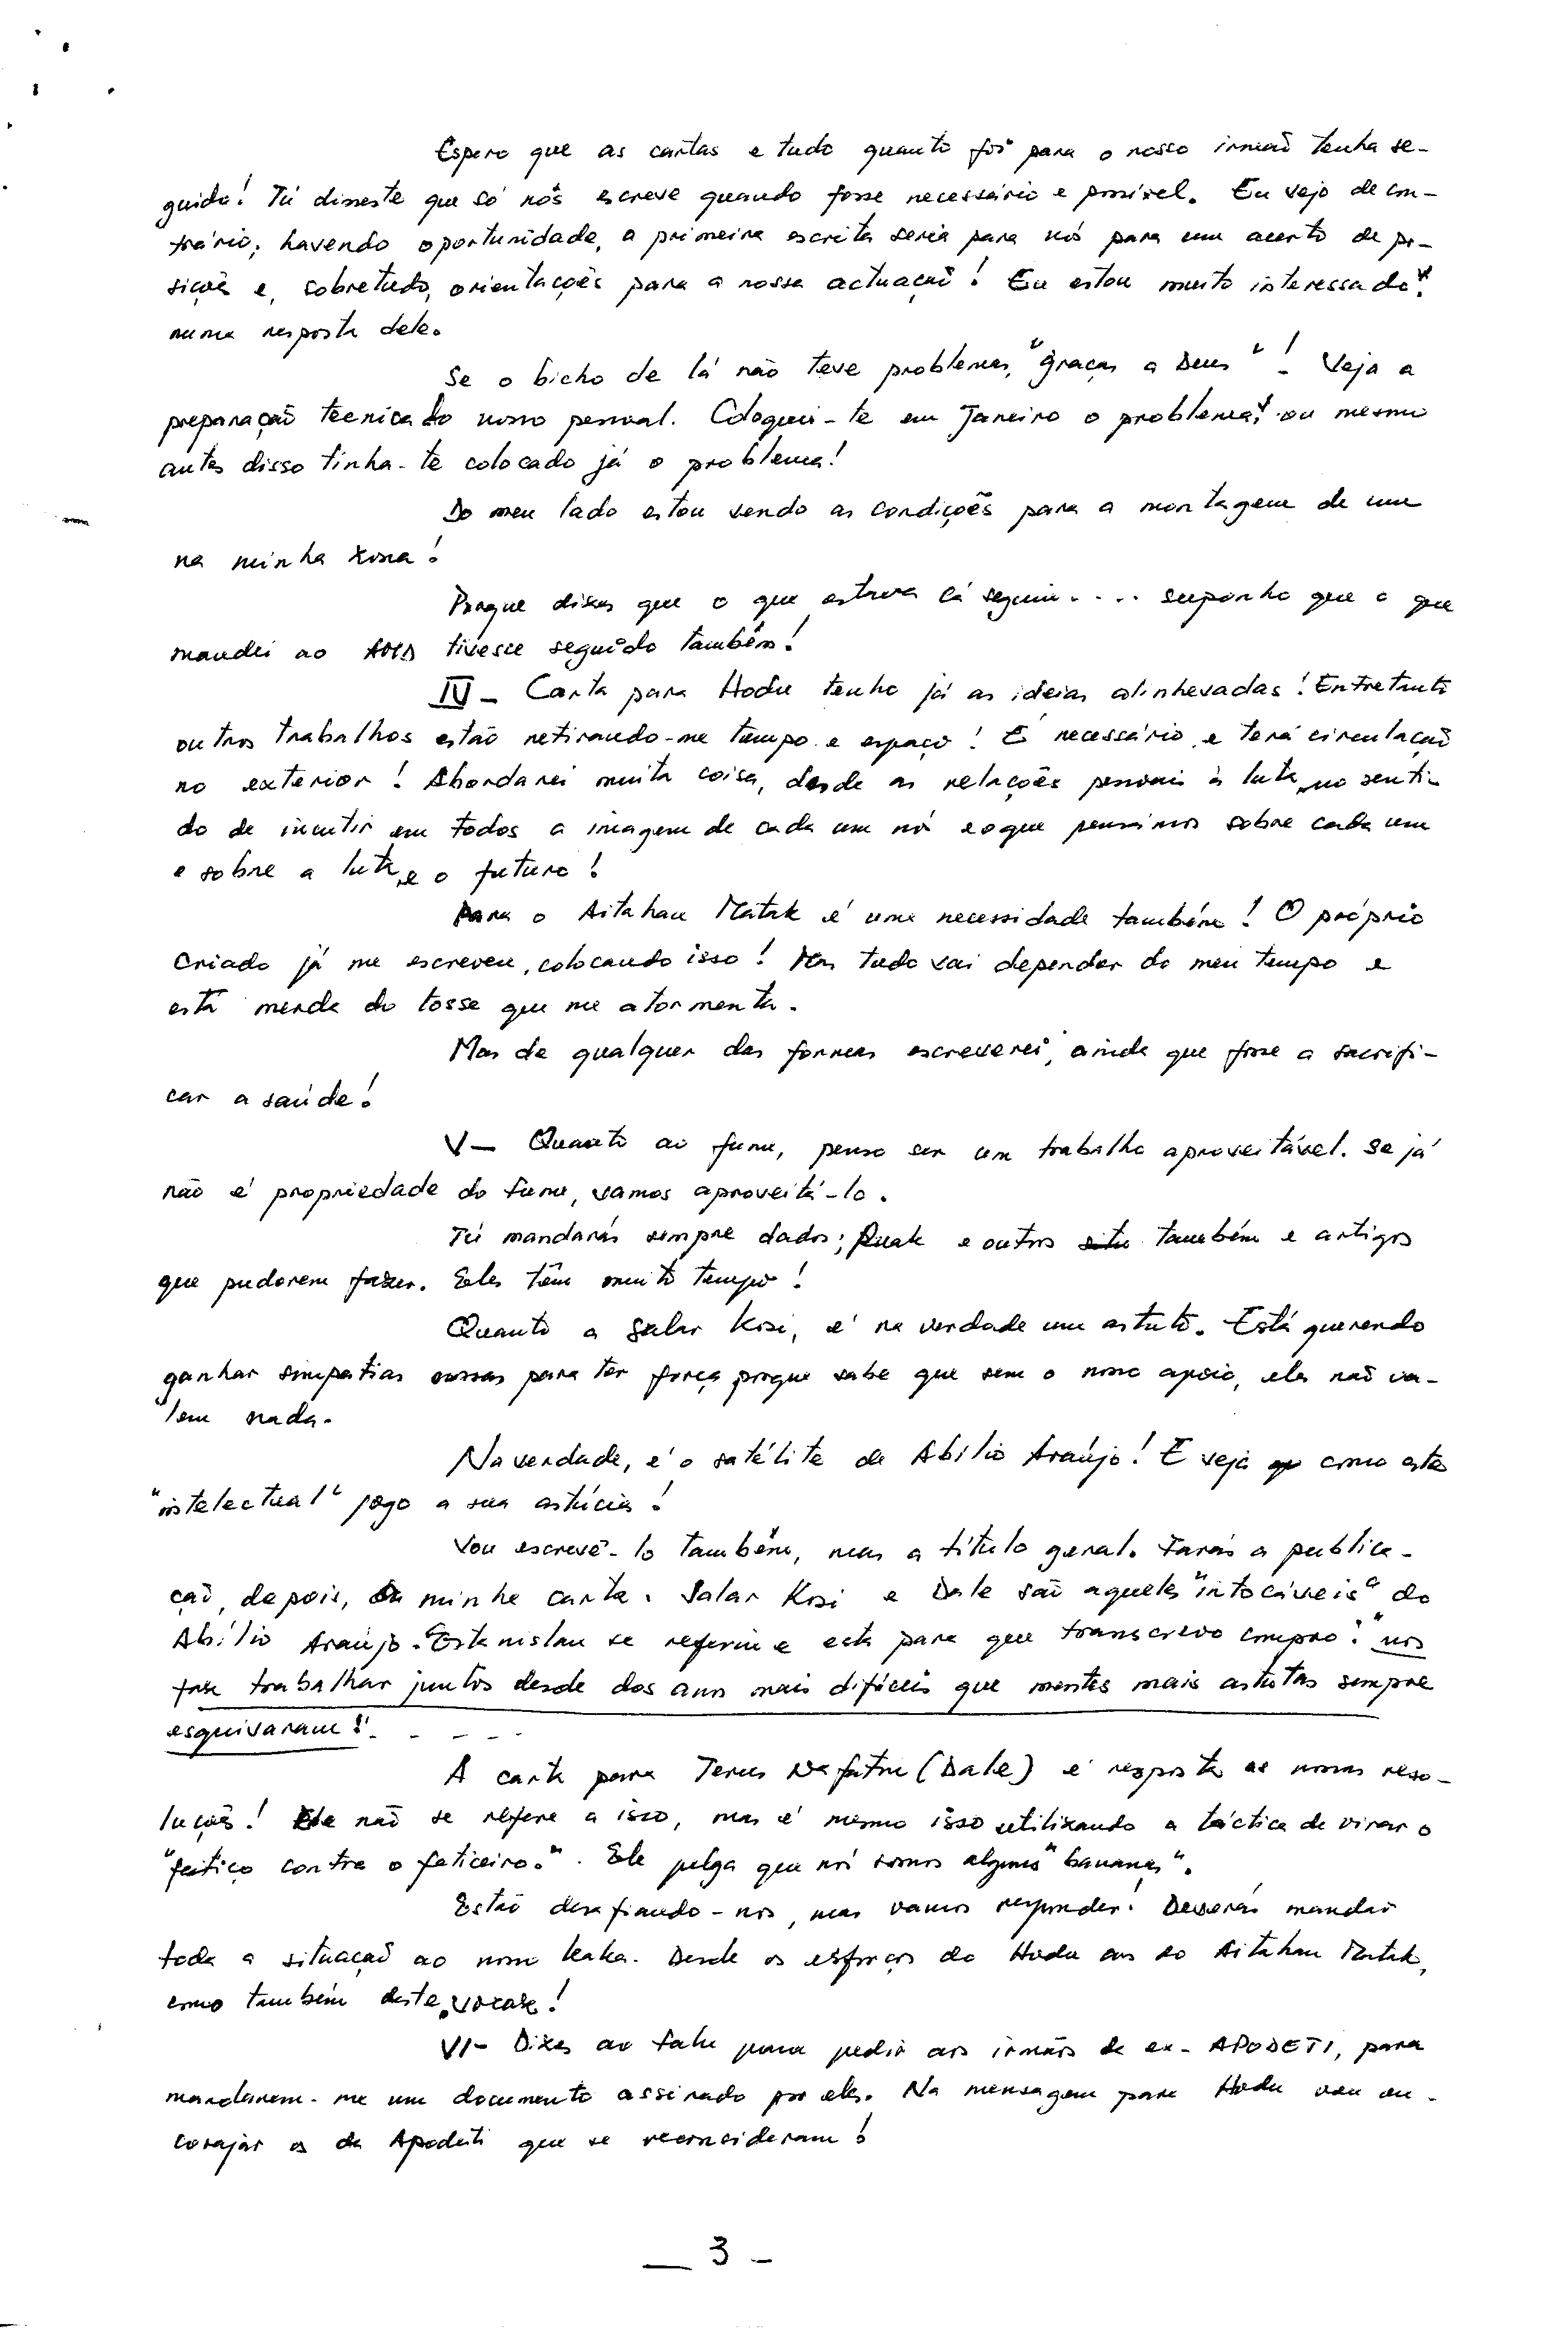 Espero que as cartas e tudo quanto foi para o nosso irmão tenha se-
guido! Tú disseste que só nós escreve quando fosse necessário e possível. Eu vejo de con-
trário; havendo oportunidade, a primeira escrita seria para nós para um acerto de po-
sições e, sobretudo, orientações para a nossa actuação! Eu estou muito interessado
numa resposta dele.
Se o bicho de lá não teve problemas, "graças a Deus"! Veja a
preparação técnica do nosso pessoal. Coloquei-te em Janeiro o problema, ou mesmo
antes disso tinha-te colocado já o problema!
Do meu lado estou vendo as condições para a montagem de um
na minha zona!
Porque dizes que o que estava cá seguiu.... suponho que o que
mandei ao tivesse seguido também!
IV- Carta para Hodu tenho já as ideias alinhevadas! Entretanto
outros trabalhos estão retirando-me tempo e espaço! É necessário e terá circulação
no exterior! Abordarei muita coisa, desde as relações pessoais à luta, no senti-
do de incutir em todos a imagem de cada um nós e o que pensamos sobre cada um
e sobre a luta, e o futuro!
Para o Aitahan Matak é uma necessidade também! O próprio
Criado já me escreveu, colocando isso! Mas tudo vai depender do meu tempo e
esta merda do tosse que me atormenta.
Mas de qualquer das formas escreverei, ainda que fosse a sacrifi-
car a saúde!
V- Quanto ao fumu, penso ser um trabalho aproveitável. Se já
não é propriedade do fumu, vamos aproveitá-lo.
Tú mandarás sempre dados; Ruak e outros também e artigos
que puderem fazer. Eles têm muito tempo!
Quanto a Salar Kosi, é na verdade um astuto. Está querendo
ganhar simpatias nossas para ter força porque sabe que sem o nosso apoio, eles não va-
lem nada.
Na verdade, é o satélite de Abílio Araújo! E veja como este
"intelectual" joga a sua astúcia!
Vou escrevê-lo também, mas a título geral. Farás a publica-
ção, depois, da minha carta. Salar Kosi e Dale são aqueles "intocáveis" do
Abílio Araújo. Estanislau se referiu e esta para que transcrevo compro: "nos
faz trabalhar juntos desde dos anos mais difíceis que mentes mais astutas sempre
esquivaram!" - - - -
A carta para Terus Nafatin (Dale) é resposta as nossas reso-
luções! Ele não se refere a isso, mas é mesmo isso utilizando a táctica de virar o
"feitiço contra o feiticeiro". Ele julga que nós somos alguns "bananas".
Estão desafiando-nos, mas vamos responder! Deverás mandar
toda a situação ao nosso kaka. Desde os esforços do Hodu aos do Aitahan Matak,
como também deste
VI- Dizes ao falu para pedir aos irmãos de ex-APODETI, para
mandarem-me um documento assinado por eles. Na mensagem para Hodu vou en-
corajar os da Apodeti que se reconsideram!
— 3 -